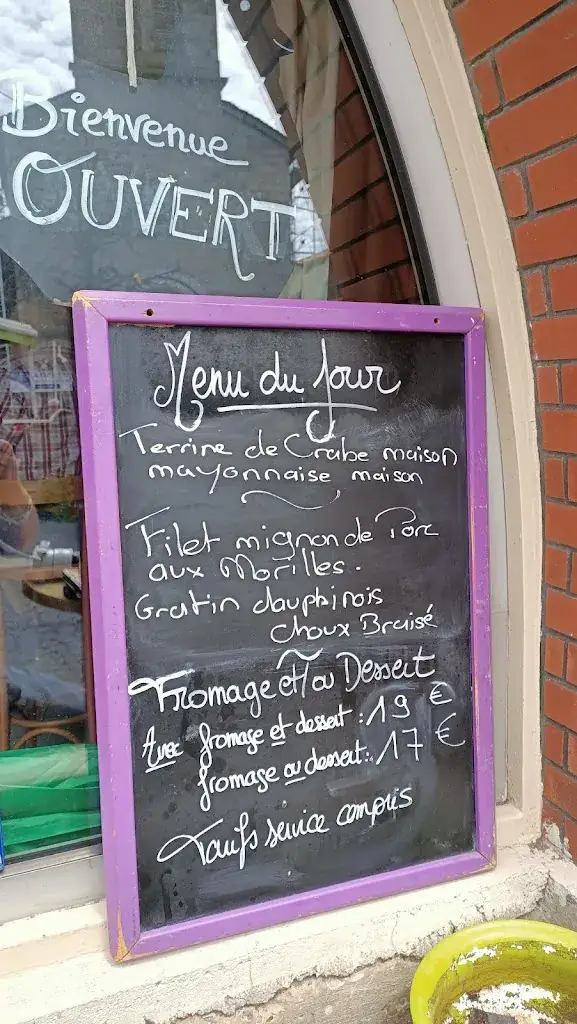 Bienvenue
OUVERT
Menu du Jour
Terrine de Crabe maison
mayonnaise maison
Filet mignon de Porc
aux Morilles.
Gratin dauphinois
choux Braisé
Fromage et/ou Dessert
Avec fromage et dessert : 19 €
fromage ou dessert : 17 €
Tarifs service compris